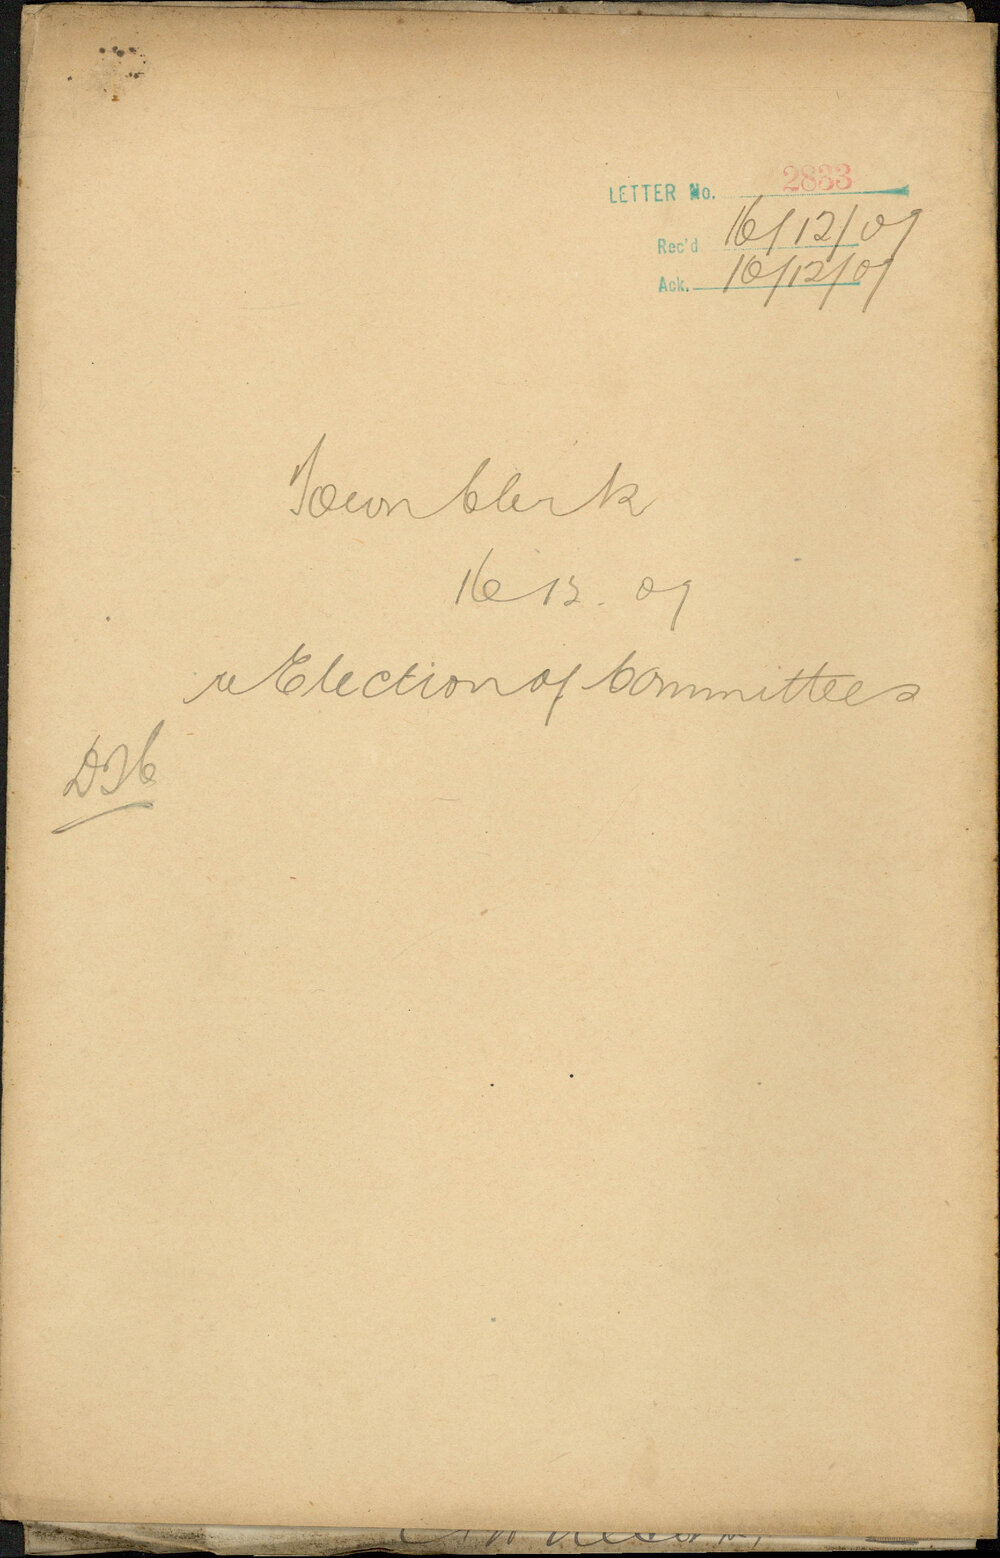 LETTER No. 2833
Rec'd 16/12/09
Ack. 16/12/09
Town Clerk
16 12. 09
re Election of Committees